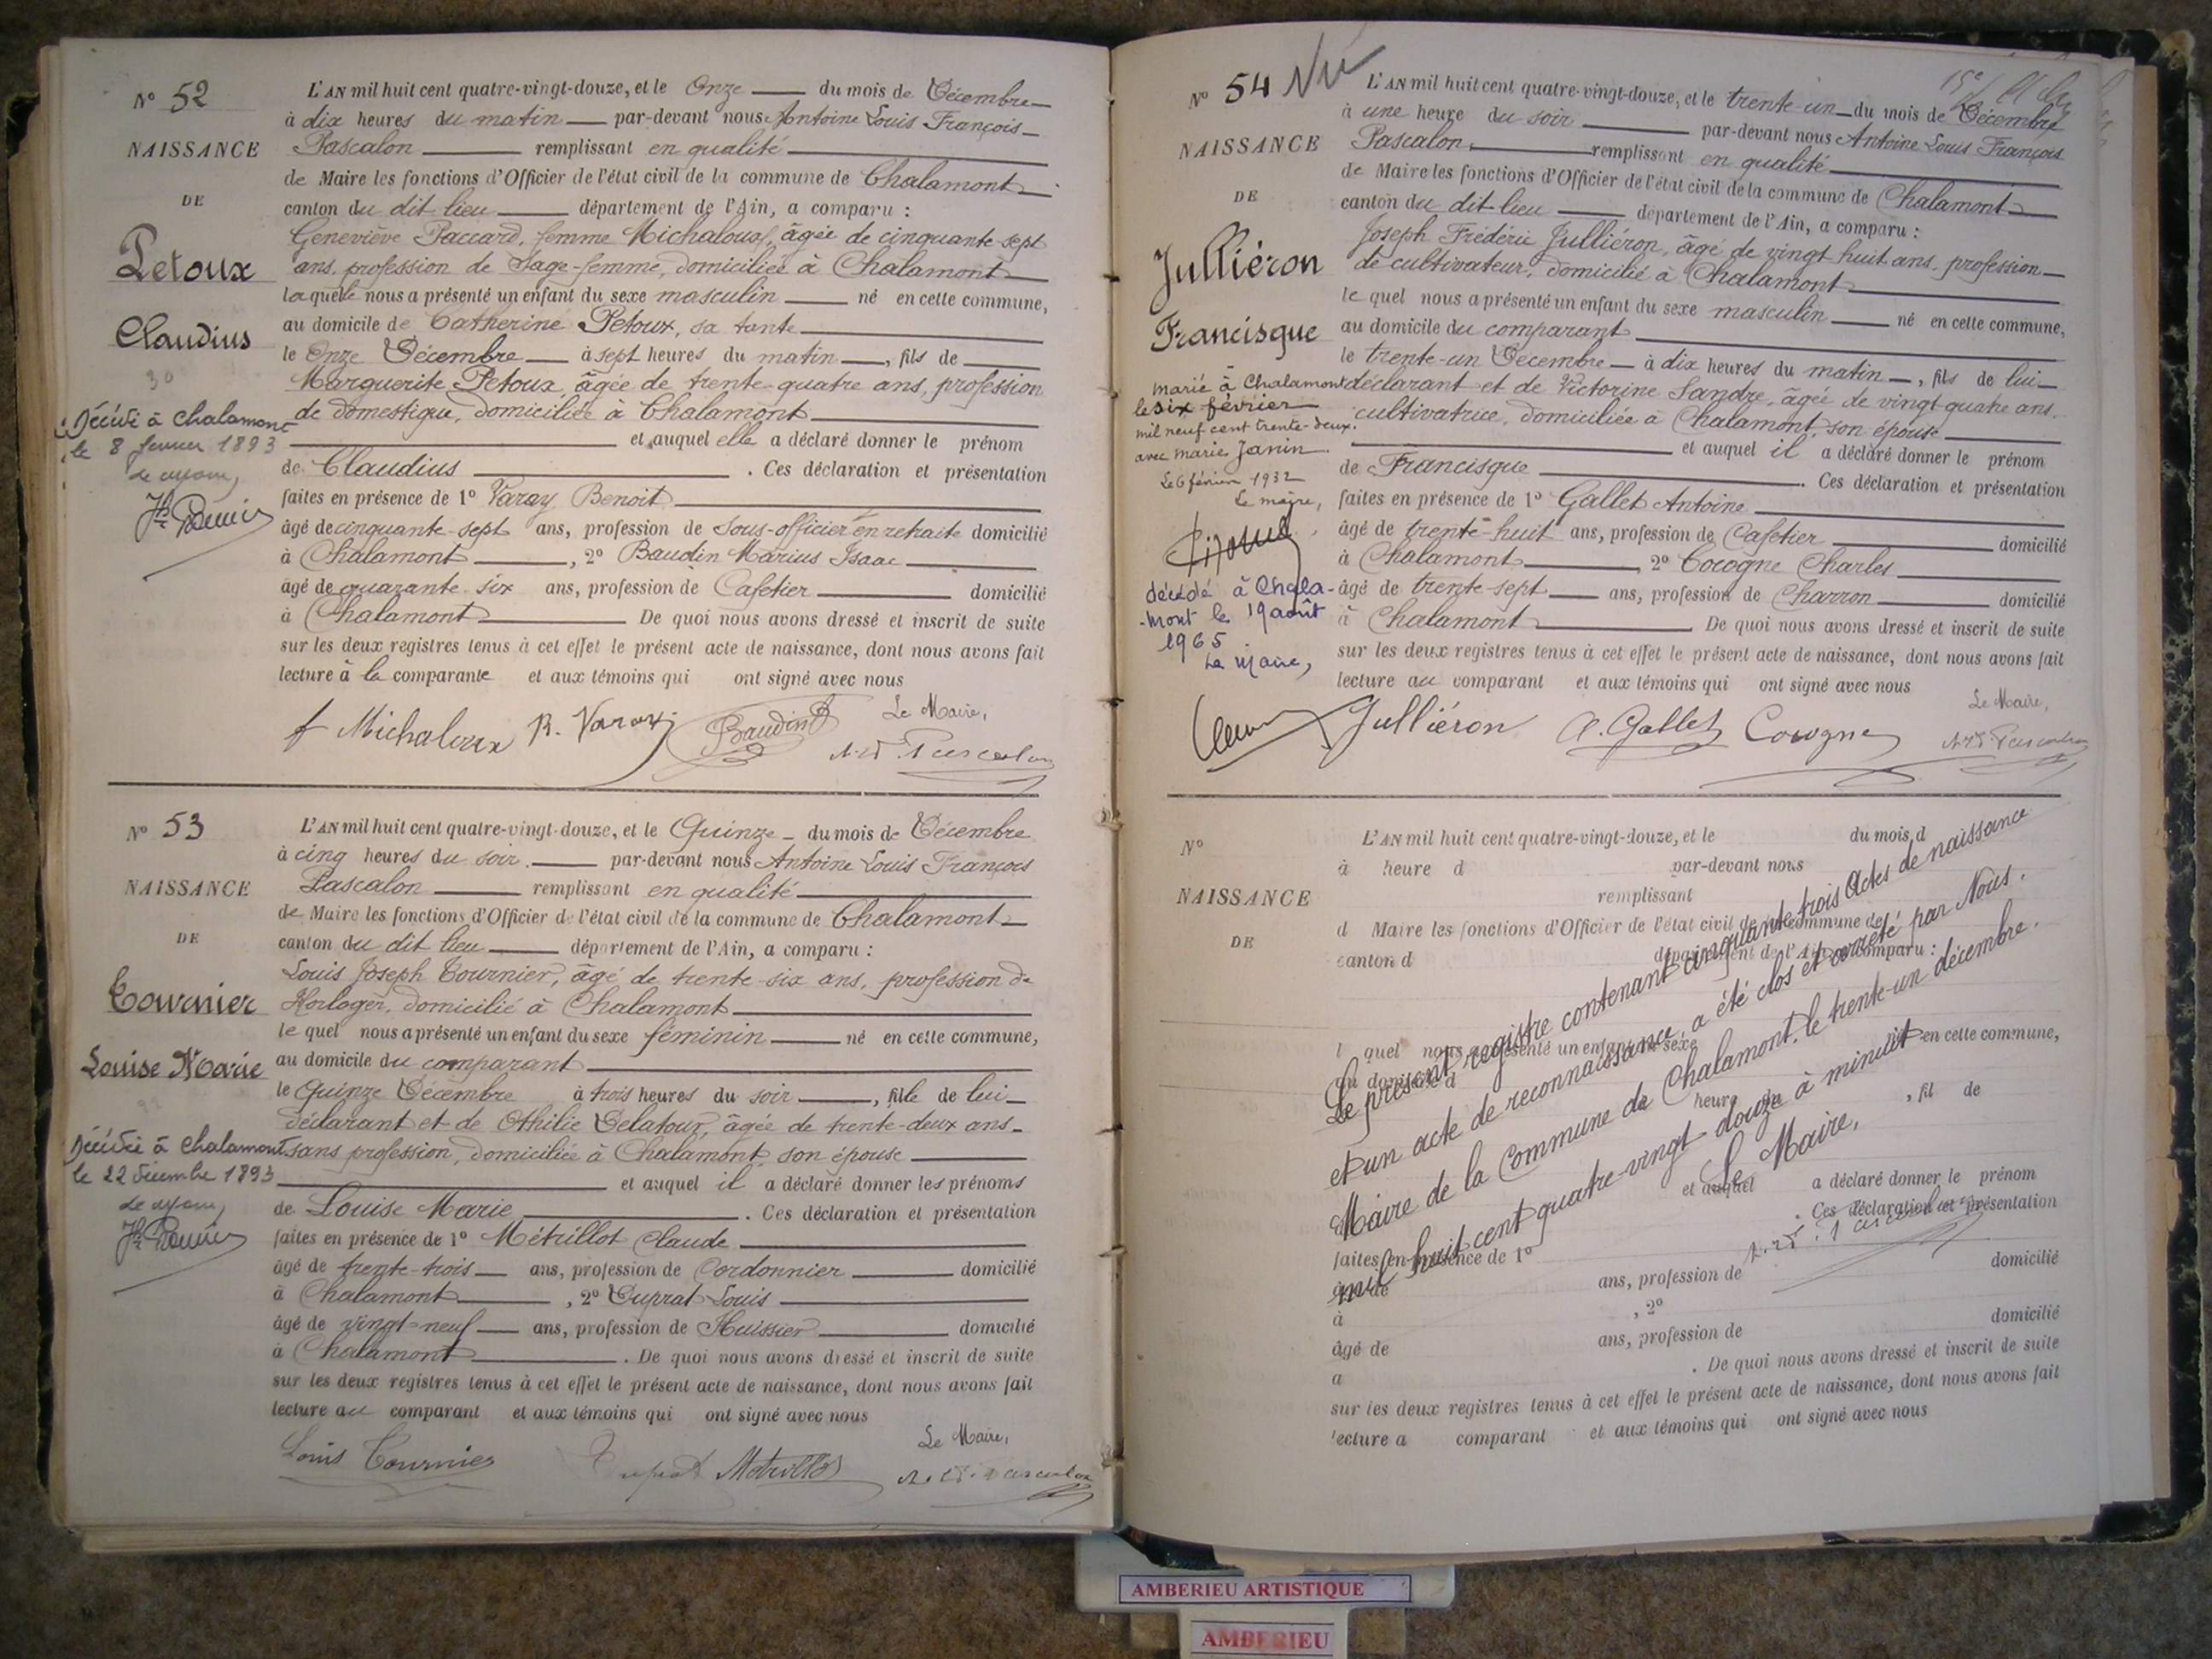 N° 52
NAISSANCE
DE
Petoux
Claudius
Décédé à Chalamont
le 8 février 1893
L'AN mil huit cent quatre-vingt-douze, et le Onze du mois de Décembre
à dix heures du matin par-devant nous Antoine Louis François
Pascalon remplissant en qualité
de Maire les fonctions d'Officier de l'état civil de la commune de Chalamont
canton du dit lieu département de l'Ain, a comparu :
Geneviève Paccard, femme Michaloux, âgée de cinquante-sept
ans, profession de Sage-femme, domiciliée à Chalamont
laquelle nous a présenté un enfant du sexe masculin né en cette commune,
au domicile de Catherine Petoux, sa tante
le Onze Décembre à sept heures du matin, fils de
Marguerite Petoux, âgée de trente-quatre ans, profession
de domestique, domiciliée à Chalamont
et auquel elle a déclaré donner le prénom
de Claudius. Ces déclaration et présentation
faites en présence de 1° Varay Benoit
âgé de cinquante-sept ans, profession de Sous-officier en retraite domicilié
à Chalamont, 2° Baudin Marius Isaac
âgé de quarante-six ans, profession de Cafetier domicilié
à Chalamont De quoi nous avons dressé et inscrit de suite
sur les deux registres tenus à cet effet le présent acte de naissance, dont nous avons fait
lecture à la comparante et aux témoins qui ont signé avec nous
Le Maire,
f Michaloux B. Varay Baudin
N° 53
NAISSANCE
DE
Tournier
Louise Marie
Décédée à Chalamont
le 22 décembre 1893
L'AN mil huit cent quatre-vingt-douze, et le Quinze du mois de Décembre
à cinq heures du soir par-devant nous Antoine Louis François
Pascalon remplissant en qualité
de Maire les fonctions d'Officier de l'état civil de la commune de Chalamont
canton du dit lieu département de l'Ain, a comparu :
Louis Joseph Tournier, âgé de trente-six ans, profession de
Horloger, domicilié à Chalamont
le quel nous a présenté un enfant du sexe féminin né en cette commune,
au domicile du comparant
le Quinze Décembre à trois heures du soir, fille de lui
déclarant et de Othilie Delatour, âgée de trente-deux ans
sans profession, domiciliée à Chalamont, son épouse
et auquel il a déclaré donner les prénoms
de Louise Marie. Ces déclaration et présentation
faites en présence de 1° Métrillot Claude
âgé de trente-trois ans, profession de Cordonnier domicilié
à Chalamont, 2° Duprat Louis
âgé de vingt-neuf ans, profession de Huissier domicilié
à Chalamont. De quoi nous avons dressé et inscrit de suite
sur les deux registres tenus à cet effet le présent acte de naissance, dont nous avons fait
lecture au comparant et aux témoins qui ont signé avec nous
Le Maire,
Louis Tournier Duprat Métrillot
N° 54 Vu
NAISSANCE
DE
Julliéron
Francisque
marié à Chalamont
le six février
mil neuf cent trente-deux
avec marie Janin
Le 6 février 1932
Le maire,
décédé à Chala-
-mont le 19 août
1965
Le Maire,
L'AN mil huit cent quatre-vingt-douze, et le trente-un du mois de Décembre
à une heure du soir par-devant nous Antoine Louis François
Pascalon remplissant en qualité
de Maire les fonctions d'Officier de l'état civil de la commune de Chalamont
canton du dit lieu département de l'Ain, a comparu :
Joseph Frédéric Julliéron, âgé de vingt huit ans, profession
de cultivateur, domicilié à Chalamont
le quel nous a présenté un enfant du sexe masculin né en cette commune,
au domicile du comparant
le trente-un Décembre à dix heures du matin, fils de lui
déclarant et de Victorine Sandre, âgée de vingt quatre ans,
cultivatrice, domiciliée à Chalamont, son épouse
et auquel il a déclaré donner le prénom
de Francisque. Ces déclaration et présentation
faites en présence de 1° Gallet Antoine
âgé de trente-huit ans, profession de Cafetier domicilié
à Chalamont, 2° Cocogne Charles
âgé de trente-sept ans, profession de Charron domicilié
à Chalamont De quoi nous avons dressé et inscrit de suite
sur les deux registres tenus à cet effet le présent acte de naissance, dont nous avons fait
lecture au comparant et aux témoins qui ont signé avec nous
Le Maire,
Julliéron A. Gallet Cocogne
N°
NAISSANCE
DE
L'AN mil huit cent quatre-vingt-douze, et le du mois d
à heure d par-devant nous
remplissant
d Maire les fonctions d'Officier de l'état civil de la commune de
canton d département de l'Ain, a comparu :
l quel nous a présenté un enfant du sexe né en cette commune,
au domicile d
heure, fil de
et auquel a déclaré donner le prénom
. Ces déclaration et présentation
faites en présence de 1°
âgé de ans, profession de domicilié
à , 2°
âgé de ans, profession de domicilié
a . De quoi nous avons dressé et inscrit de suite
sur les deux registres tenus à cet effet le présent acte de naissance, dont nous avons fait
lecture a comparant et aux témoins qui ont signé avec nous
Le présent registre contenant cinquante trois Actes de naissance
et un acte de reconnaissance, a été clos et arrêté par Nous.
Maire de la Commune de Chalamont, le trente-un décembre.
mil huit cent quatre-vingt-douze à minuit
Le Maire,
AMBERIEU ARTISTIQUE
AMBERIEU